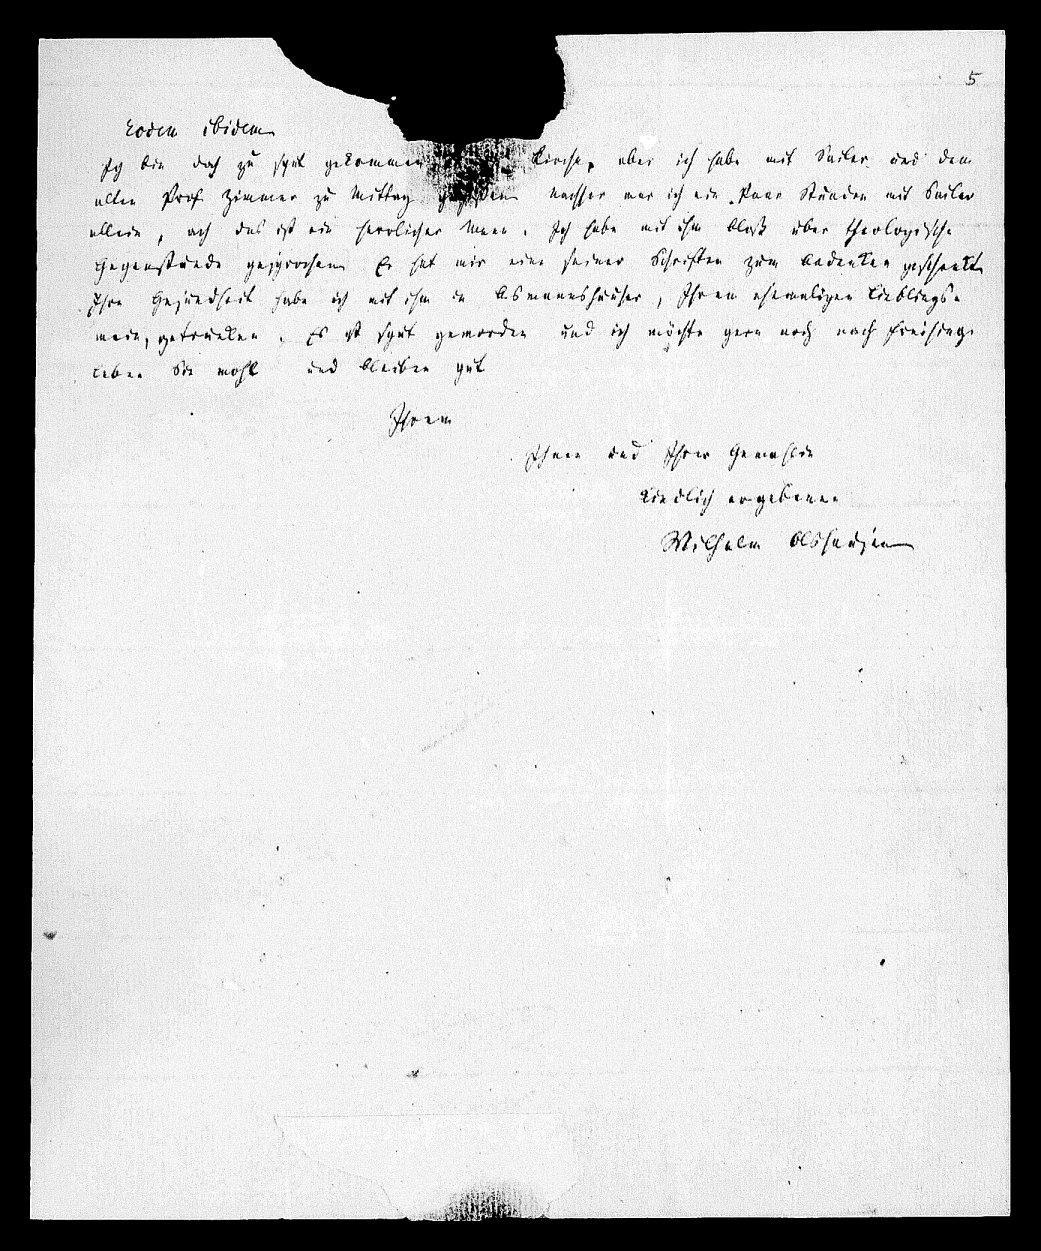 5
Eodem ibidem
Ich bin doch zu spät gekommen Kirche, aber ich habe mit Sailer und dem
alten Prof Zimmer zu Mittag gegessen nachher war ich ein Paar Stunden mit Sailer
allein, ach das ist ein herrlicher Mann. Ich habe mit ihm bloß über theologische
Gegenstände gesprochen Er hat mir eine seiner Schriften zum Andenken geschenkt
Ihre Gesundheit habe ich mit ihm in Asmannshäuser, Ihrem ehemaligen Lieblings-
wein, getrunken. Es ist spät geworden und ich möchte gern noch nach Freising.
Leben Sie wohl und bleiben gut
Ihrem
Ihnen und Ihrer Gemahlin
kindlich ergebenen
Wilhelm Olshausen